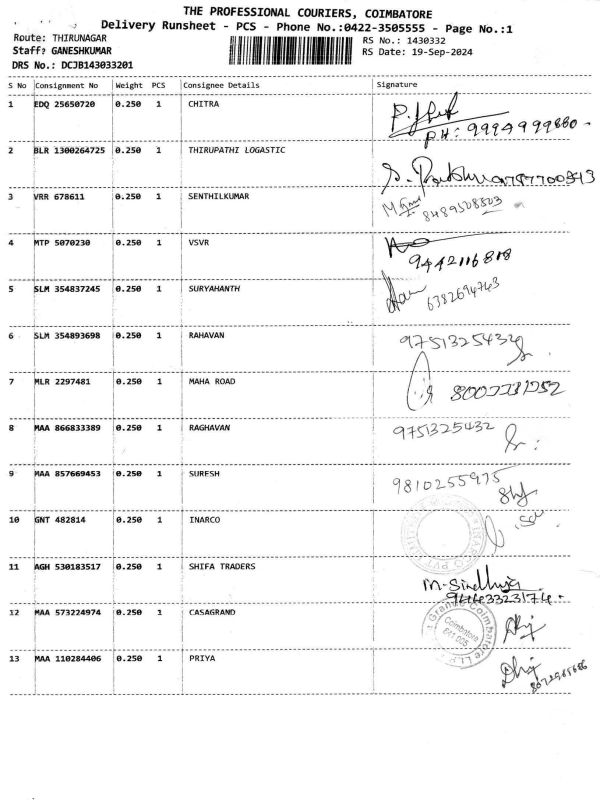 THE PROFESSIONAL COURIERS, COIMBATORE
Delivery Runsheet - PCS - Phone No.:0422-3505555 - Page No.:1
Route: THIRUNAGAR
RS No.: 1430332
Staff? GANESHKUMAR
RS Date: 19-Sep-2024
DRS No.: DCJB143033201
S No Consignment No Weight PCS Consignee Details Signature
1 EDQ 25650720 0.250 1 CHITRA
P.H: 9994999880.
2 BLR 1300264725 0.250 1 THIRUPATHI LOGASTIC
3 VRR 678611 0.250 1 SENTHILKUMAR
8489508803
4 MTP 5070230 0.250 1 VSVR
9442116818
5 SLM 354837245 0.250 1 SURYAHANTH
6382694743
6 SLM 354893698 0.250 1 RAHAVAN
9751325432
7 MLR 2297481 0.250 1 MAHA ROAD
8 MAA 866833389 0.250 1 RAGHAVAN
9751325432
9 MAA 857669453 0.250 1 SURESH
9810255975
10 GNT 482814 0.250 1 INARCO
11 AGH 530183517 0.250 1 SHIFA TRADERS
M. Sindhuja
94443323174.
12 MAA 573224974 0.250 1 CASAGRAND
Coimbatore
13 MAA 110284406 0.250 1 PRIYA